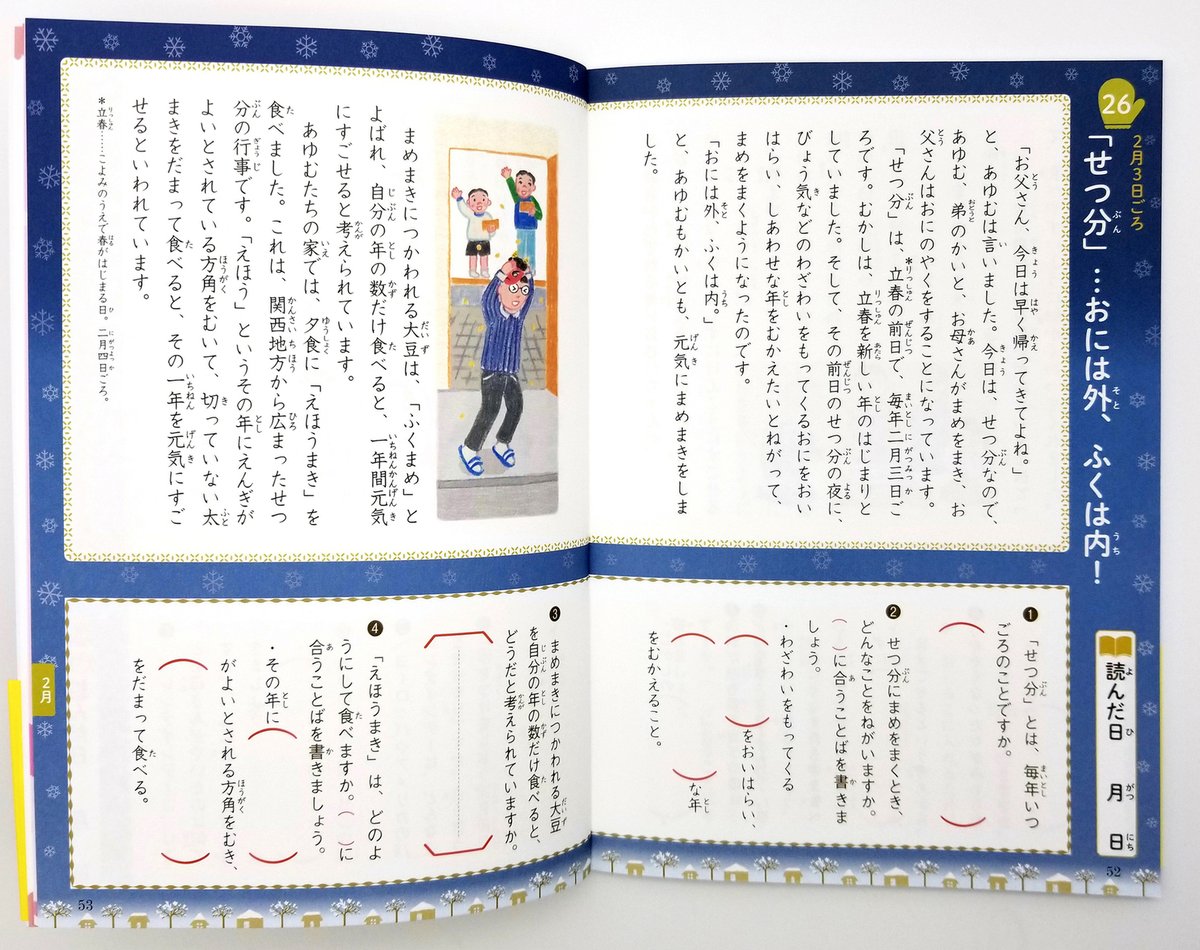 26
2月3日ごろ
「せつ分」…おには外、ふくは内！
読んだ日　月　日
「お父さん、今日は早く帰ってきてよね。」
と、あゆむは言いました。今日は、せつ分なので、
あゆむ、弟のかいと、お母さんがまめをまき、お
父さんはおにのやくをすることになっています。
「せつ分」は、*立春の前日で、毎年二月三日ご
ろです。むかしは、立春を新しい年のはじまりと
していました。そして、その前日のせつ分の夜に、
びょう気などのわざわいをもってくるおにをおい
はらい、しあわせな年をむかえたいとねがって、
まめをまくようになったのです。
「おには外、ふくは内。」
と、あゆむもかいとも、元気にまめまきをしま
した。
まめまきにつかわれる大豆は、「ふくまめ」と
よばれ、自分の年の数だけ食べると、一年間元気
にすごせると考えられています。
あゆむたちの家では、夕食に「えほうまき」を
食べました。これは、関西地方から広まったせつ
分の行事です。「えほう」というその年にえんぎが
よいとされている方角をむいて、切っていない太
まきをだまって食べると、その一年を元気にすご
せるといわれています。
*立春……こよみのうえで春がはじまる日。二月四日ごろ。
❶「せつ分」とは、毎年いつ
ごろのことですか。
（　）
❷せつ分にまめをまくとき、
どんなことをねがいますか。
（　）に合うことばを書きま
しょう。
・わざわいをもってくる
（　）をおいはらい、
（　）な年
をむかえること。
❸まめまきにつかわれる大豆
を自分の年の数だけ食べると、
どうだと考えられていますか。
❹「えほうまき」は、どのよ
うにして食べますか。（　）に
合うことばを書きましょう。
・その年に（　）
がよいとされる方角をむき、
（　）
をだまって食べる。
2月
52
53